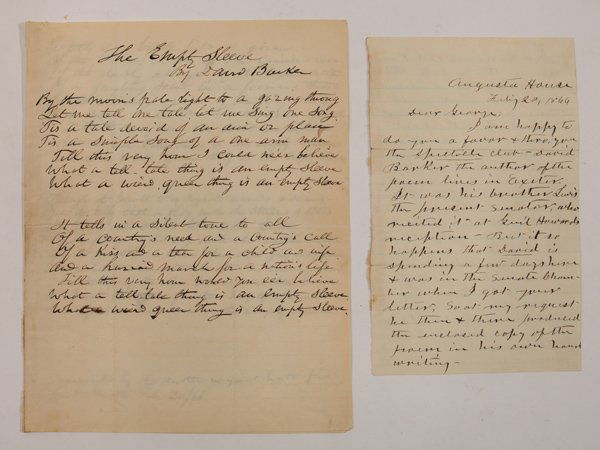 The Empty Sleeve
By David Barker
By the moon's pale light to a gazing throng
Let me tell one tale, let me sing one song
Tis a tale devoid of an aim or plan
Tis a simple song of a one arm man
Till this very hour I could ne'er believe
What a tell-tale thing is an empty sleeve
What a weird queer thing is an empty sleeve
It tells in a silent tone to all
Of a country's need and a country's call
Of a kiss and a tear for a child and wife
and a hurried march for a nation's life
Till this very hour would you e'er believe
What a tell-tale thing is an empty sleeve
What a weird queer thing is an empty sleeve
Augusta House
Feby 20, 1866
Dear George,
I am happy to
do you a favor & thro, you
the Spectacle club - David
Barker the author of the
poem lives in Exeter.
It was his brother Lewis
the present senator, who
recited it at Genl Howards
reception - But it so
happens that David is
spending a few days here
& was in the senate cham-
ber when I got your
letter, so at my request
he then & there produced
the enclosed copy of the
poem in his own hand
writing -